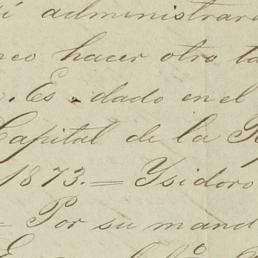 administrar
hacer otro ta
. Es dado en el
Capital de la R
1873. = Ysidoro
= Por su mand